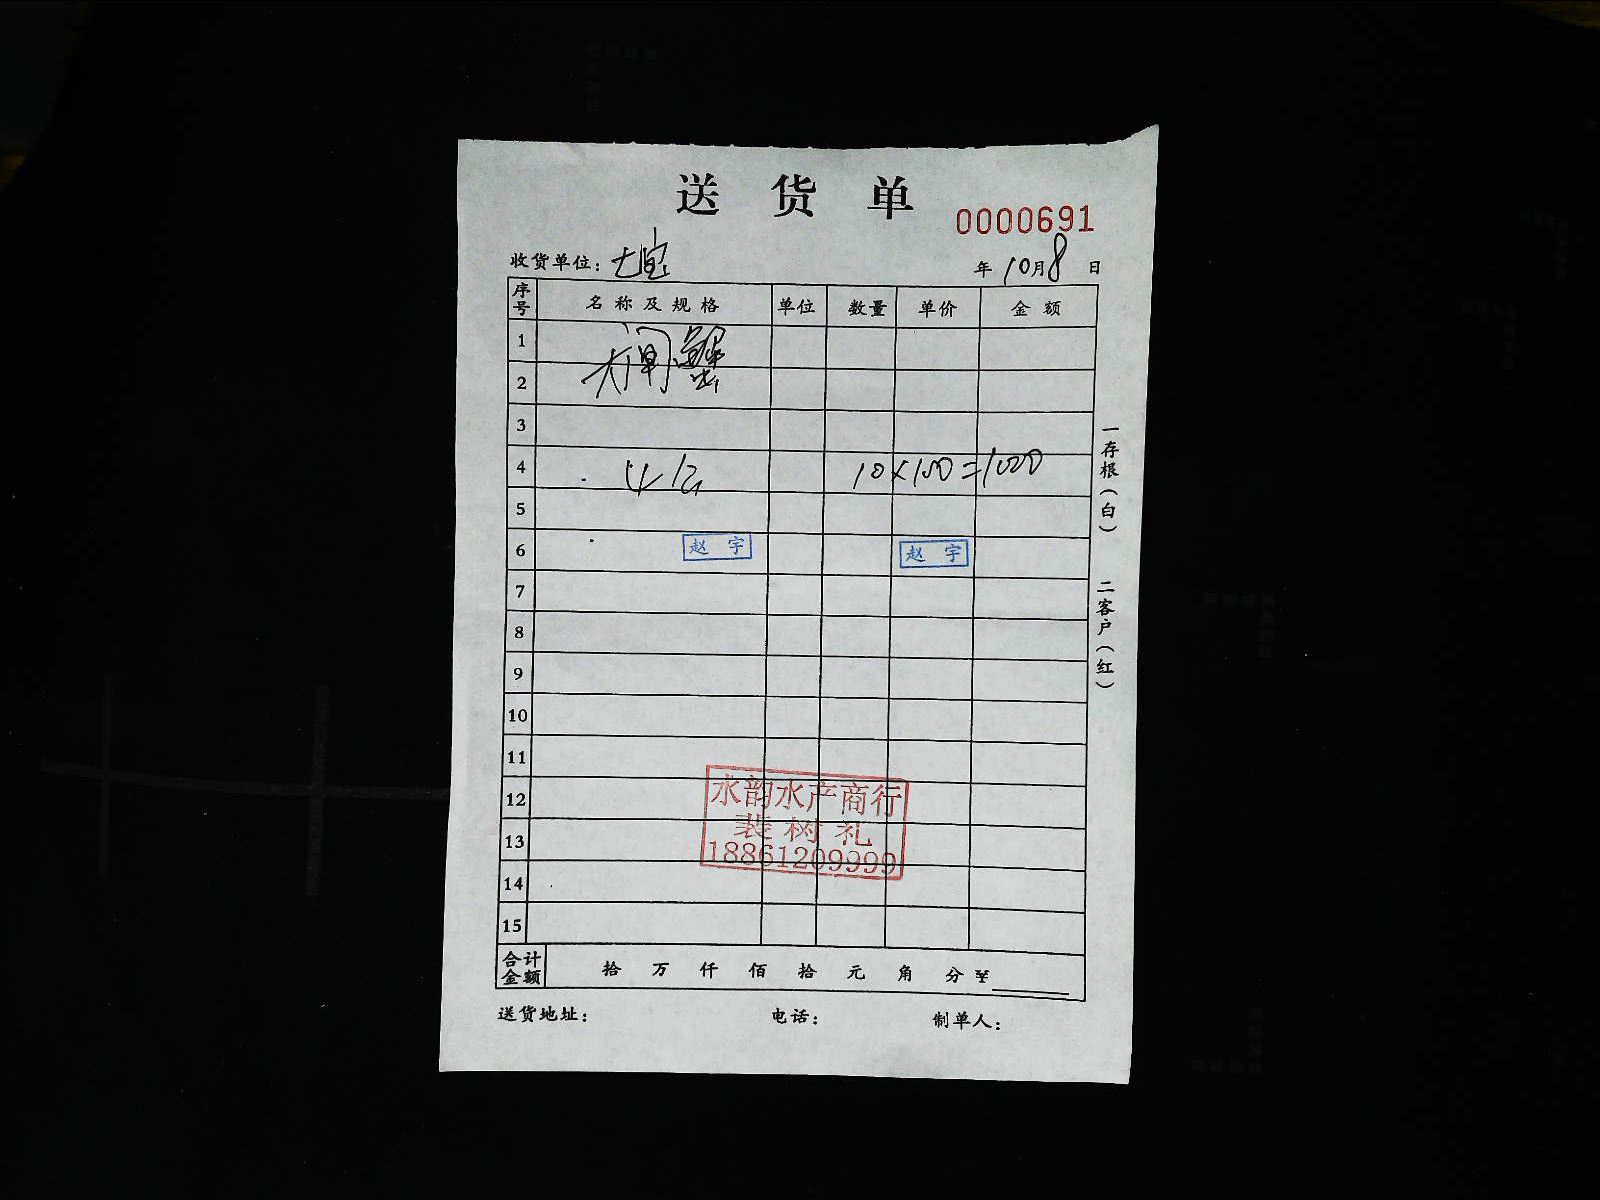 送货单
0000691
收货单位：七宝
年10月8日
序号 名称及规格 单位 数量 单价 金额
1
大闸蟹
2
3
4 4公 10×100=1000
5
6 赵宇 赵宇
7
8
9
10
11
12
13
14
15
水韵水产商行
裴树礼
18861209999
合计金额 拾 万 仟 佰 拾 元 角 分 ¥
送货地址： 电话： 制单人：
一存根（白） 二客户（红）